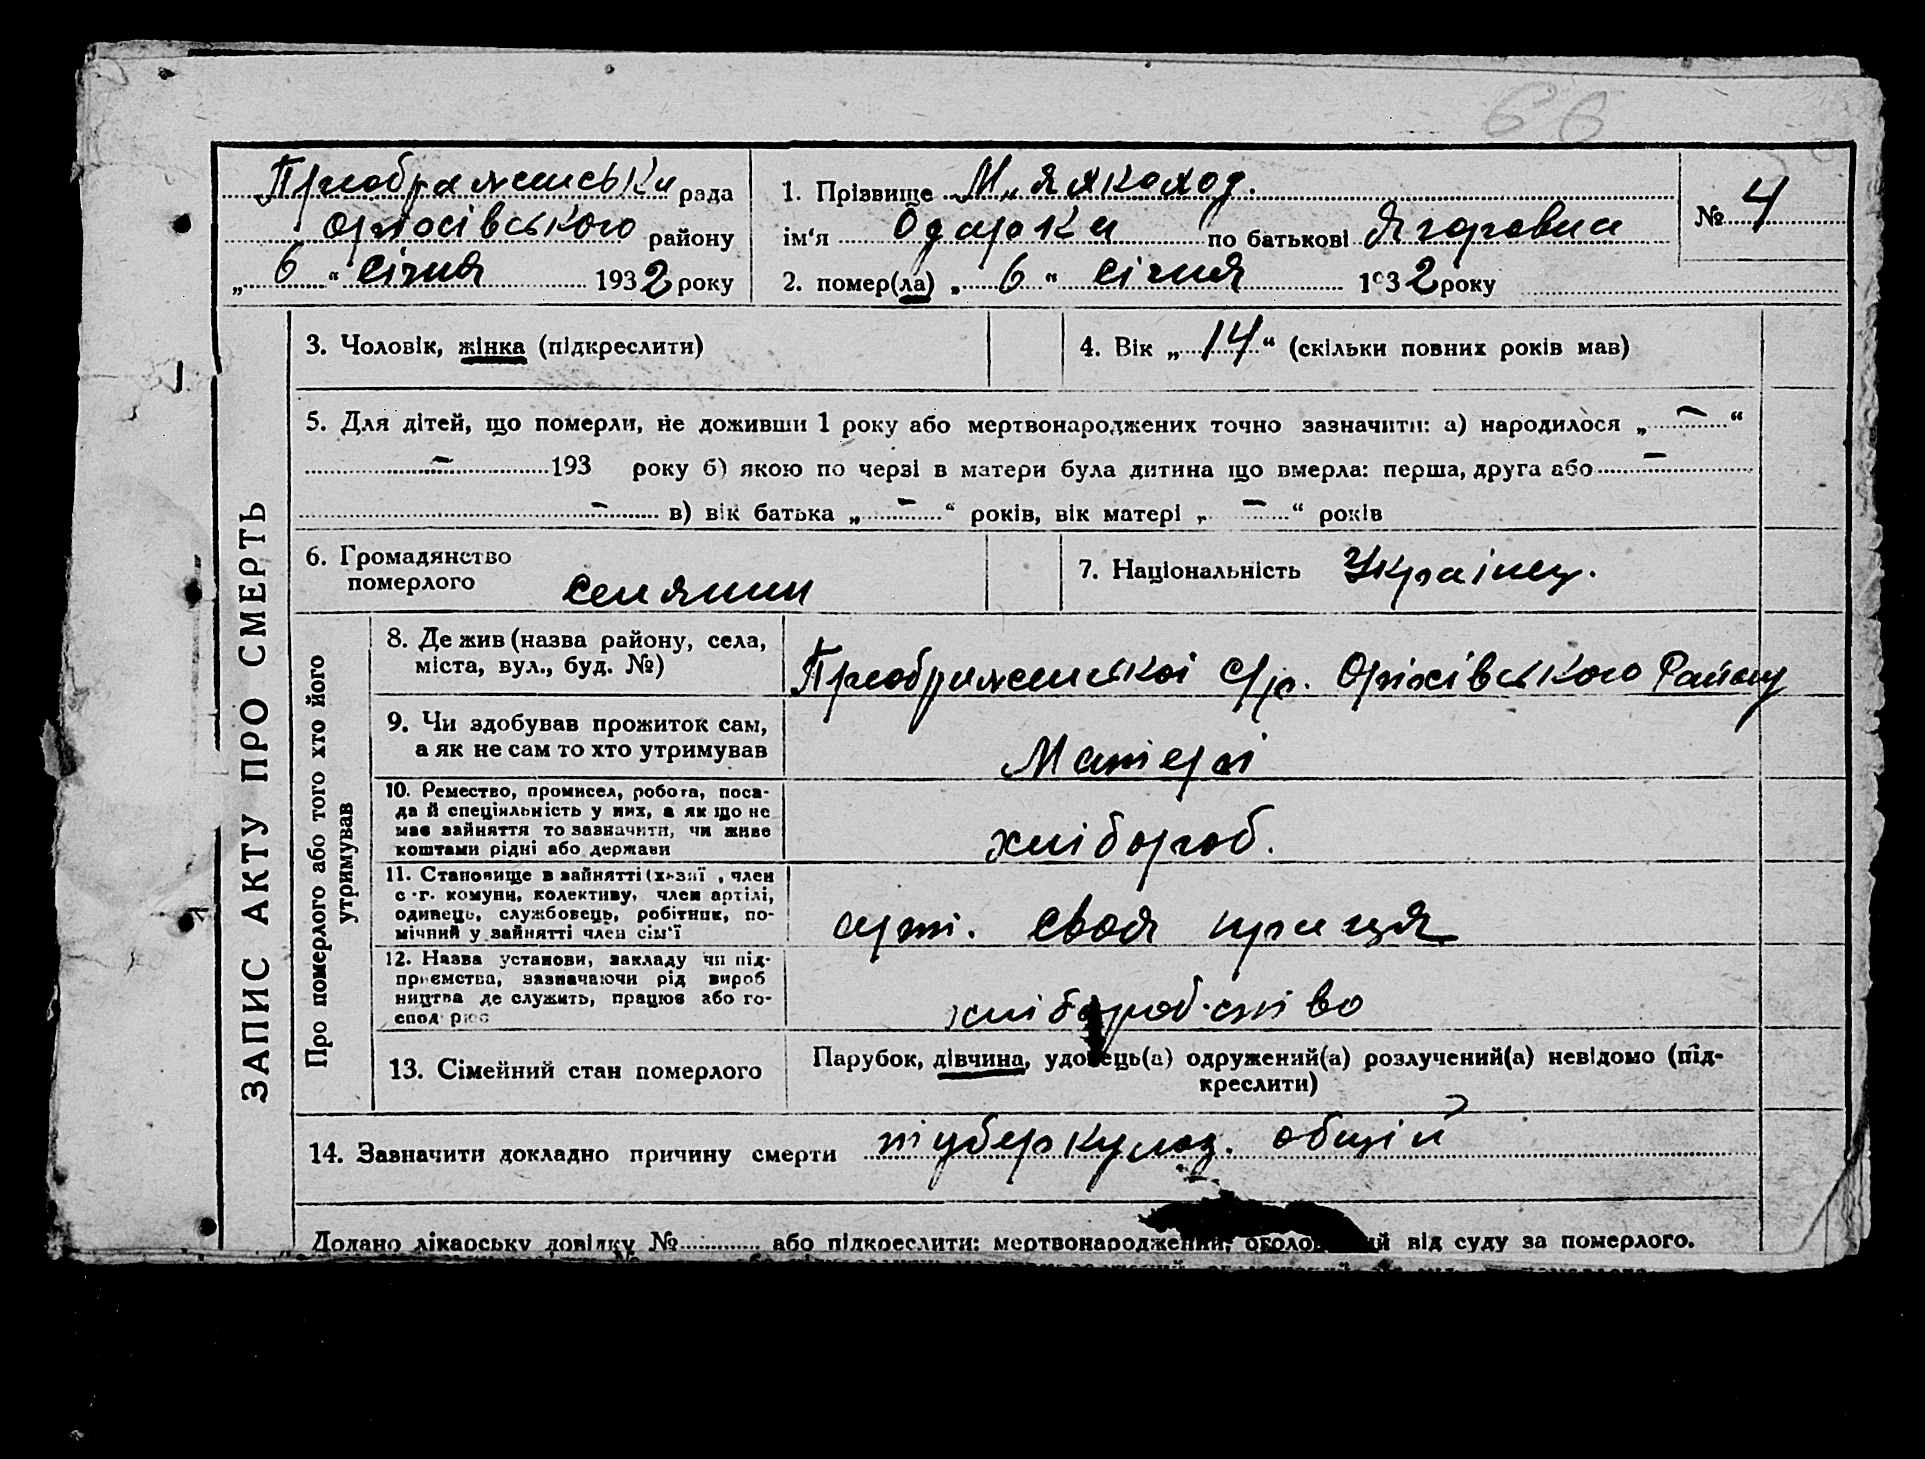 66
Преображенська рада
Оріхівського району
„ 6 “ січня 1932 року
1. Прізвище М'ягкоход.
ім'я Одарка по батькові Ягоровна
2. помер(ла) „ 6 “ січня 1932 року
№ 4
3. Чоловік, жінка (підкреслити)
4. Вік „ 14 “ (скільки повних років мав)
5. Для дітей, що померли, не доживши 1 року або мертвонароджених точно зазначити: а) народилося „ – “
– 193 року б) якою по черзі в матери була дитина що вмерла: перша, друга або –
– в) вік батька „ – “ років, вік матері „ – “ років
6. Громадянство
померлого селянин
7. Національність Українец.
ЗАПИС АКТУ ПРО СМЕРТЬ
Про померлого або того хто його
утримував
8. Де жив (назва району, села,
міста, вул., буд. №)
Преображенської с/р. Оріхівського Району
9. Чи здобував прожиток сам,
а як не сам то хто утримував
Матері
10. Ремество, промисел, робота, поса-
да й спеціяльність у них, а як що не
має зайняття то зазначити, чи живе
коштами рідні або держави
хлібороб.
11. Становище в зайнятті (хазяї, член
с.-г. комуни, колективу, член артілі,
одинець, службовець, робітник, по-
мічний у зайнятті член сім'ї
арт. своя праця
12. Назва установи, закладу чи під-
приємства, зазначаючи рід вироб
ництва де служить, працює або го-
спод рює
хліборобство
13. Сімейний стан померлого
Парубок, дівчина, удовець(а) одружений(а) розлучений(а) невідомо (під-
креслити)
14. Зазначити докладно причину смерти туберкулоз. общій
Додано лікарську довідку № або підкреслити: мертвонароджений, оголошений від суду за померлого.